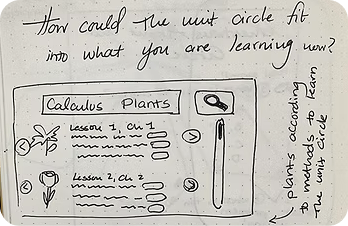 How could the unit circle fit
into what you are learning now?
Calculus Plants
Lesson 1, Ch 1
Lesson 2, Ch 2
plants according
to methods to learn
the unit circle